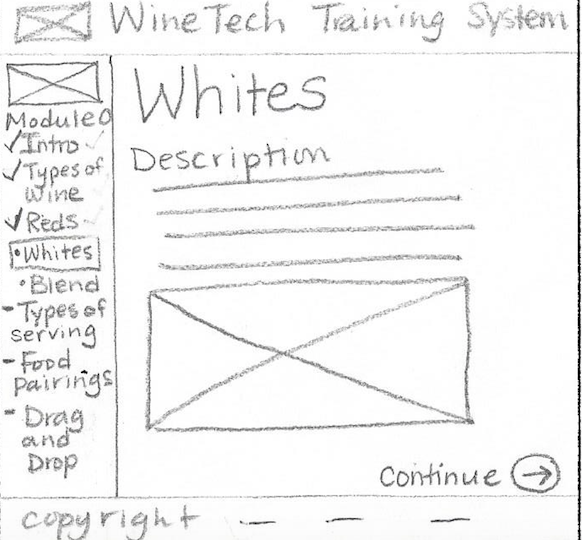 WineTech Training System
Module 0
✓Intro
✓Types of
wine
✓Reds
•Whites
•Blend
-Types of
serving
-Food
pairings
-Drag
and
Drop
Whites
Description
Continue →
copyright